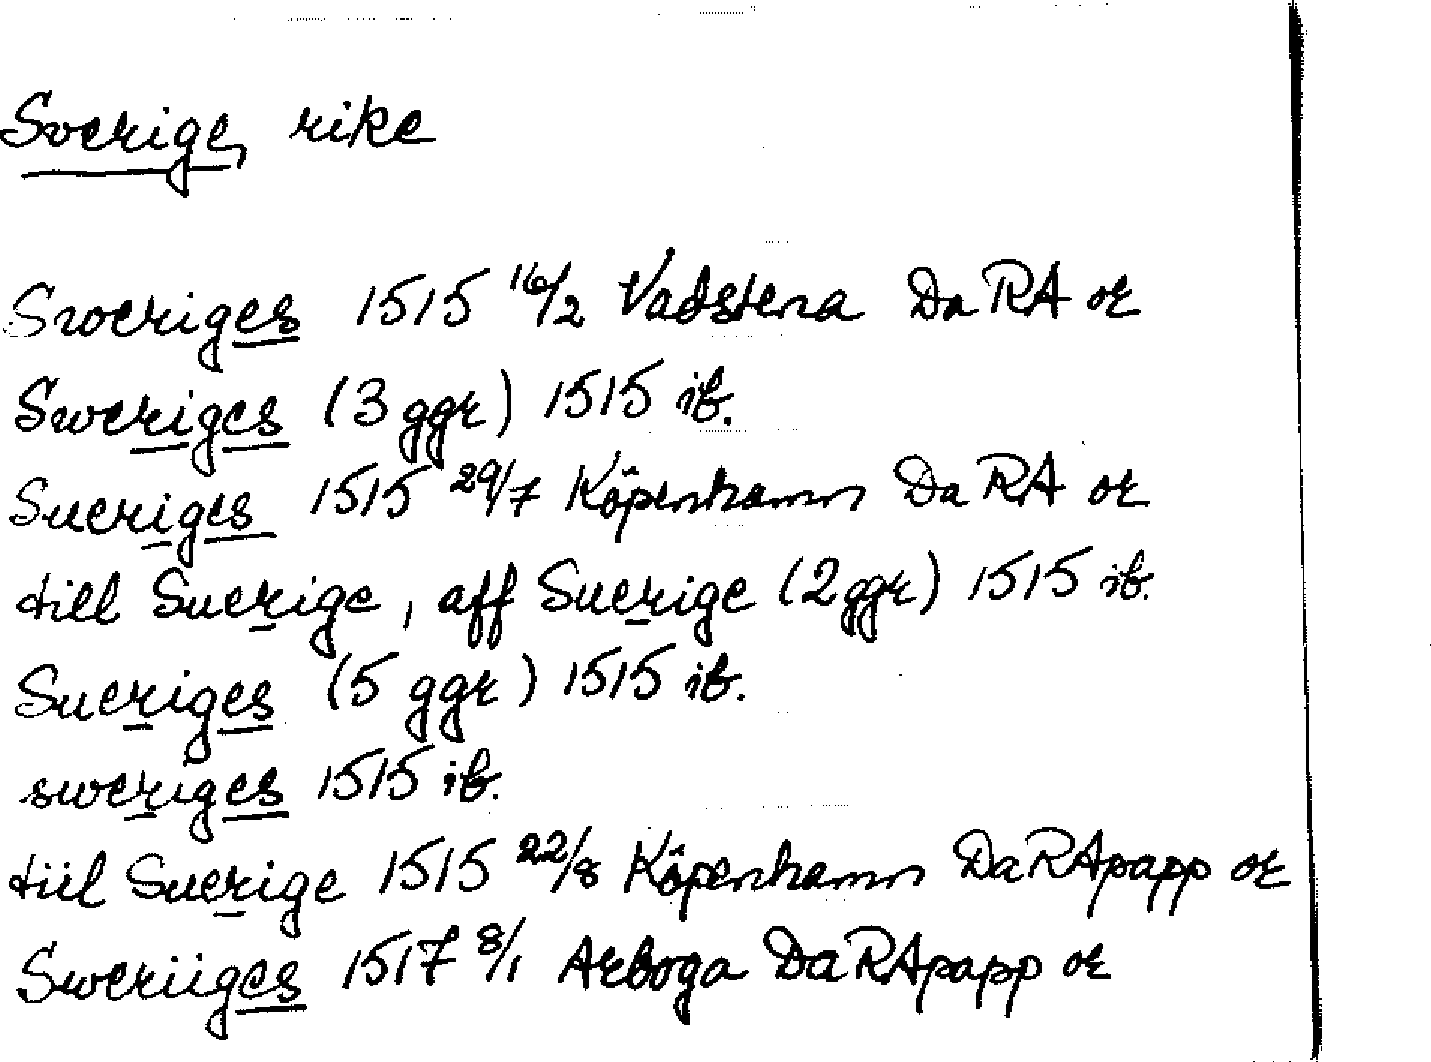 Sverige, rike
Sweriges 1515 16/2 Vadstena DaRA or
Sweriges (3 ggr) 1515 ib.
Sueriges 1515 29/7 Köpenhamn DaRA or
till Suerige, aff Suerige (2 ggr) 1515 ib.
Sueriges (5 ggr) 1515 ib.
sweriges 1515 ib.
tiil Suerige 1515 22/8 Köpenhamn DaRApapp or
Sweriiges 1517 8/1 Arboga DaRApapp or